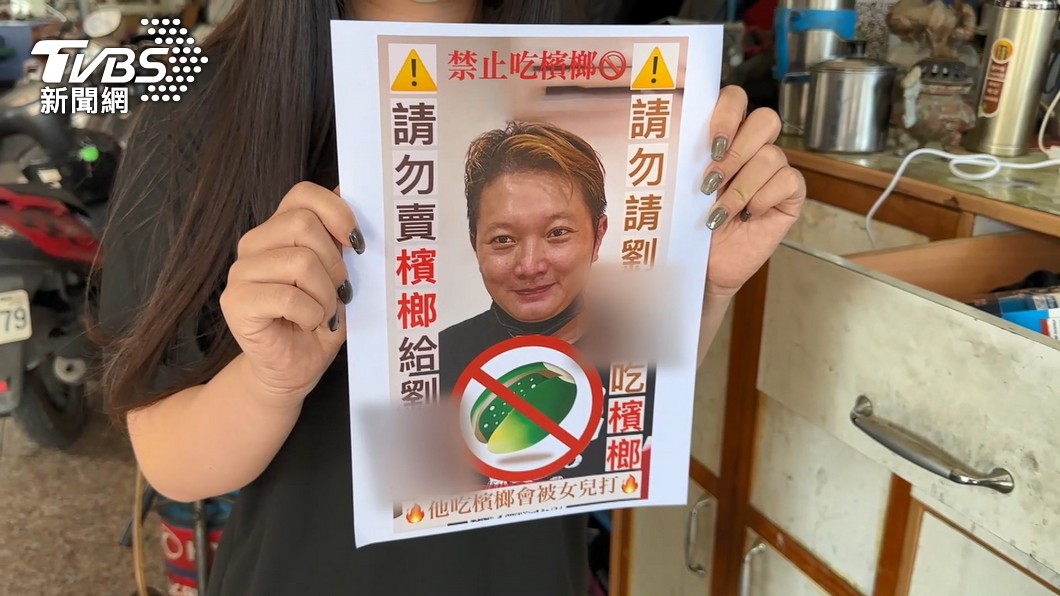 TVBS
新聞網
禁止吃檳榔
請勿賣檳榔給劉
請勿請劉
吃檳榔
他吃檳榔會被女兒打
79